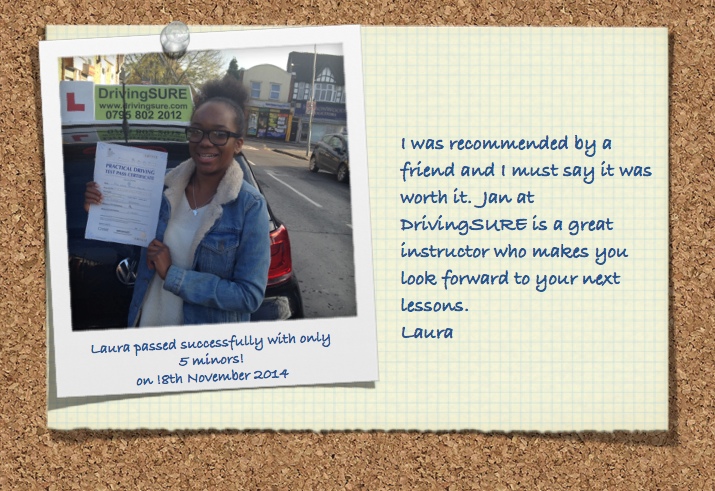 L
DrivingSURE
www.drivingsure.com
0795 802 2012
PRACTICAL DRIVING
TEST PASS CERTIFICATE
Laura passed successfully with only
5 minors!
on 18th November 2014
I was recommended by a
friend and I must say it was
worth it. Jan at
DrivingSURE is a great
instructor who makes you
look forward to your next
lessons.
Laura